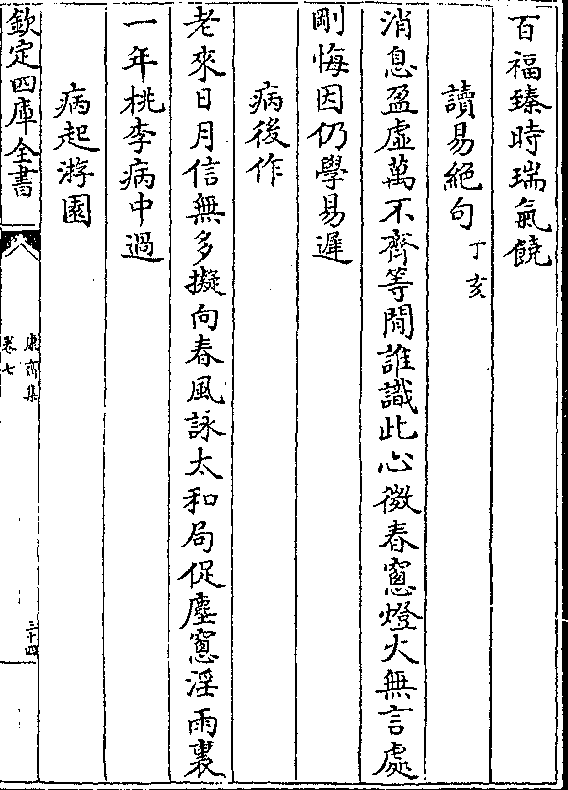 百福臻時瑞氣饒
讀易絕句丁亥
消息盈虛萬不齊等閒誰識此心微春窻燈火無言處
剛悔因仍學易遲
病後作
老來日月信無多擬向春風詠太和局促塵窻淫雨裏
一年桃李病中過
病起游園
欽定四庫全書
康齋集
卷七
三十四